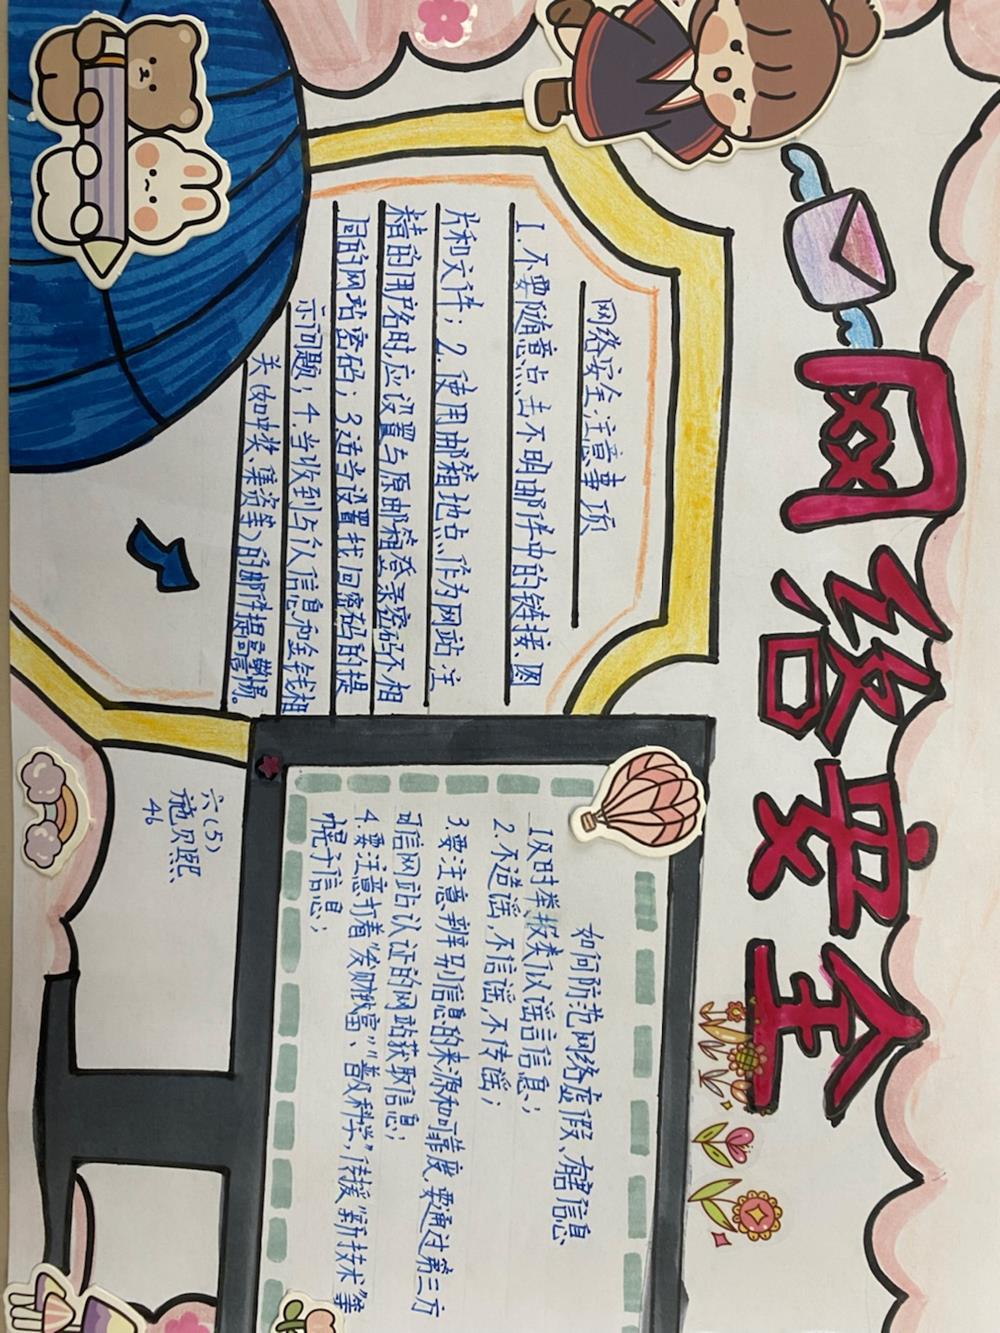 网络安全
网络安全注意事项
1.不要随意点击不明邮件中的链接、图
片和文件；2.使用邮箱地点作为网站注
精的用户名时,应设置与原邮箱登录密码不相
同的网站密码；3.适当设置找回密码的提
示问题；4.当收到与个人信息和金钱相
关(如中奖、集资等)的邮件提高警惕。
如何防范网络虚假、有害信息
1及时举报类似谣言信息；
2.不造谣,不信谣,不传谣；
3.要注意辨别信息的来源和可靠度,要通过第三方
可信网站认证的网站获取信息；
4.要注意打着“发财致富”、“普及科学”,传授“新技术”等
幌子信息；
六(5)
施贝熙
46